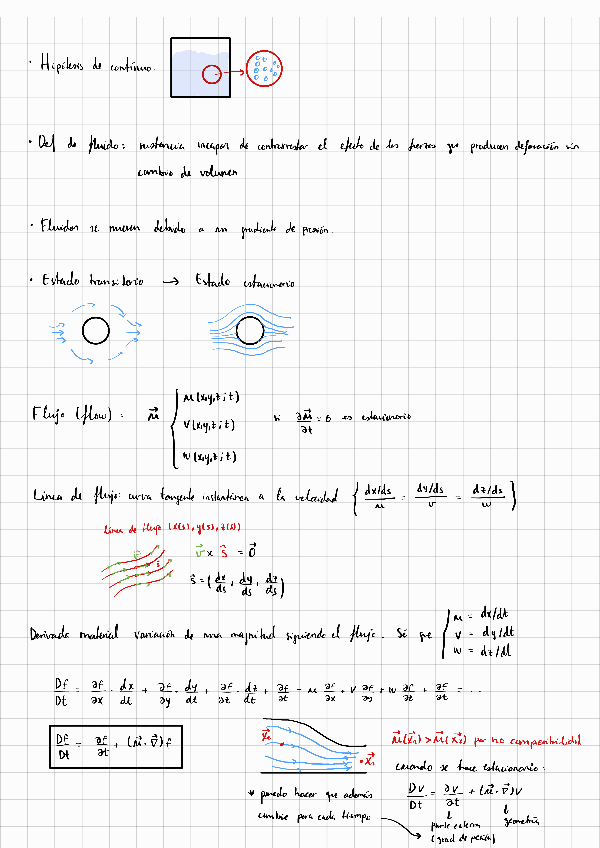 · Hipótesis de contínuo.
· Def de fluido: sustancia incapaz de contrarrestar el efecto de las fuerzas que producen deformación sin
cambio de volumen
· Fluidos se mueven debido a un gradiente de presión.
· Estado transitorio → Estado estacionario
Flujo (flow): u⃗ { u(x,y,z;t)
v(x,y,z;t)
w(x,y,z;t)
si ∂u⃗/∂t = 0 es estacionario
Línea de flujo: curva tangente instantánea a la velocidad { dx/ds / u = dy/ds / v = dz/ds / w }
Línea de flujo (x(s), y(s), z(s))
v⃗ × ŝ = 0⃗
ŝ = (dx/ds, dy/ds, dz/ds)
Derivada material variación de una magnitud siguiendo el flujo. Sé que { u = dx/dt
v = dy/dt
w = dz/dt
Df/Dt = ∂f/∂x · dx/dt + ∂f/∂y · dy/dt + ∂f/∂z · dz/dt + ∂f/∂t = u ∂f/∂x + v ∂f/∂y + w ∂f/∂z + ∂f/∂t = ...
Df/Dt = ∂f/∂t + (u⃗·∇⃗)f
u⃗(x⃗₁) > u⃗(x⃗₂) por no compresibilidad
cuando se hace estacionario:
Dv/Dt = ∂v/∂t + (u⃗·∇⃗)v
* puedo hacer que además
cambie para cada tiempo
parte externa
(grad de presión)
geometría